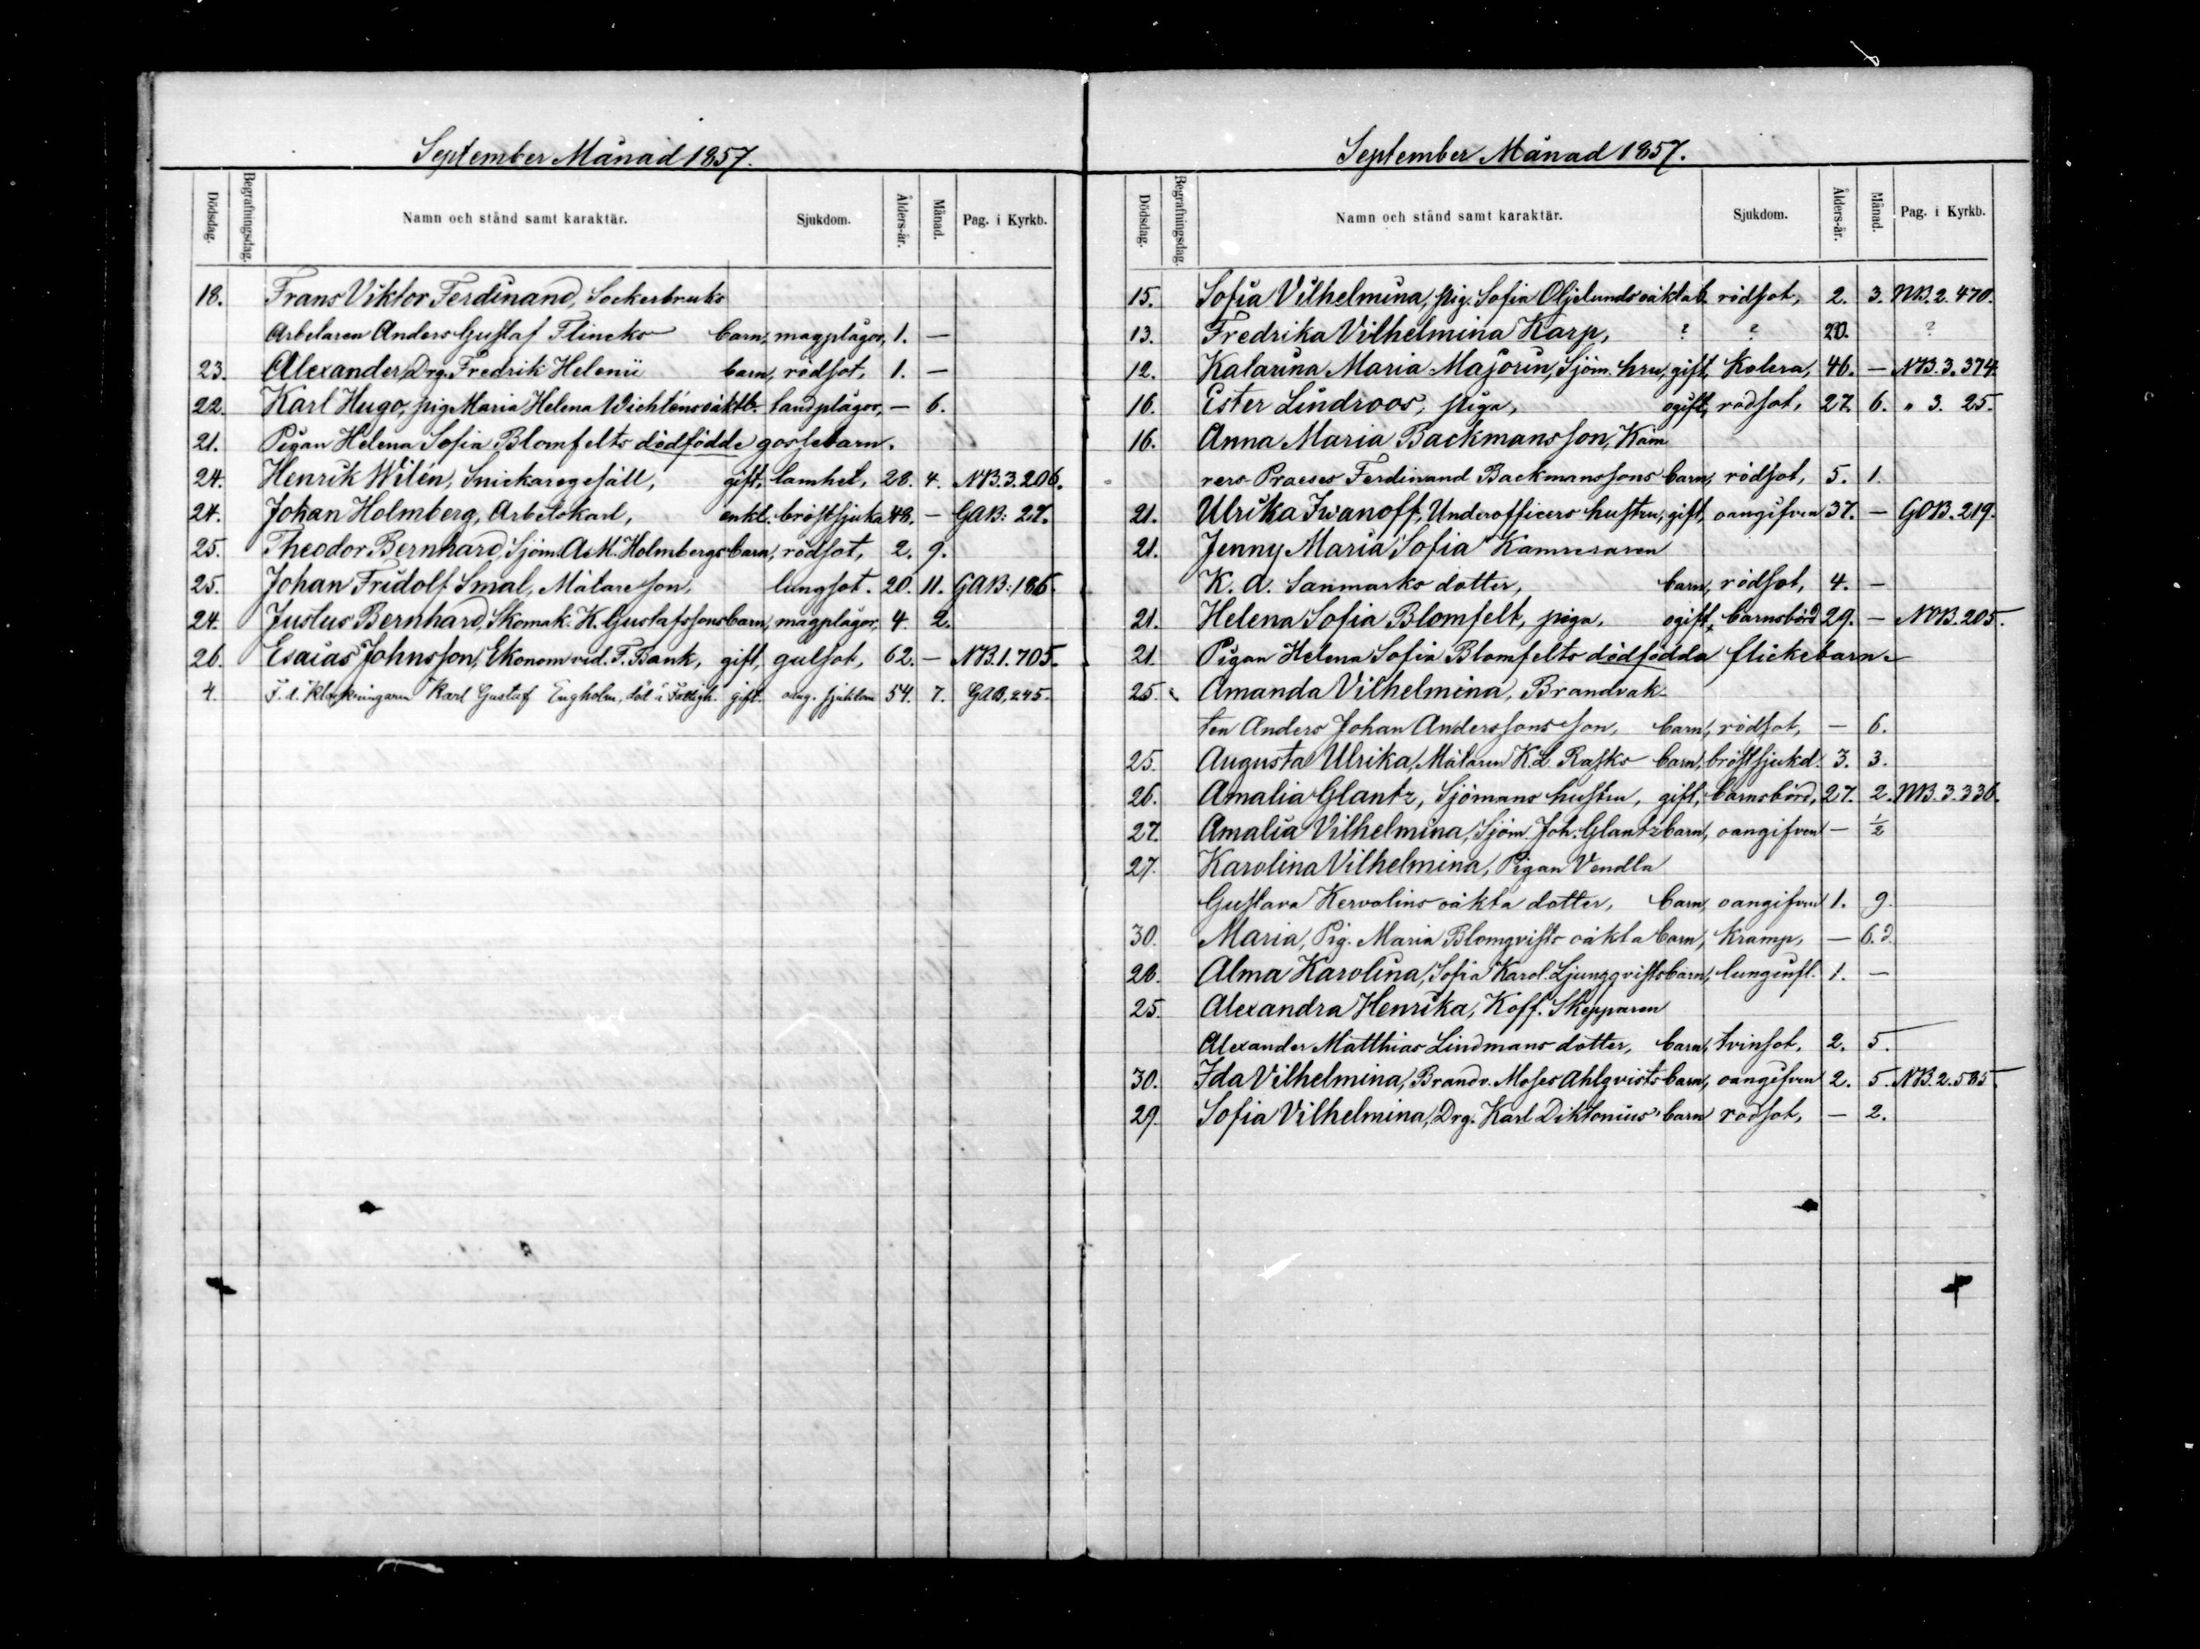 September Månad 1857.
Dödsdag. Begrafningsdag. Namn och stånd samt karaktär. Sjukdom. Ålders-år. Månad. Pag. i Kyrkb.
18. Frans Viktor Ferdinand, Sockerbruks
Arbetaren Anders Gustaf Flincks barn, magplågor, 1. —
23. Alexander, Drg. Fredrik Helenii barn, rödsot, 1. —
22. Karl Hugo, pig. Maria Helena Wichténs oäktb. tandplågor, — 6.
21. Pigan Helena Sofia Blomfelts dödfödde gossebarn.
24. Henrik Wilén, Snickaregesäll, gift, lamhet, 28. 4. NB. 3. 206.
24. Johan Holmberg, Arbetskarl, enkl. bröstsjuka 48. — GAB: 27.
25. Theodor Bernhard, Sjöm. A. M. Holmbergs barn, rödsot, 2. 9.
25. Johan Fridolf Smal, Målareson, lungsot. 20. 11. GAB: 186.
24. Justus Bernhard, Skomak. K. Gustafssons barn, magplågor, 4. 2.
26. Esaias Johnsson, Ekonom vid. F. Bank, gift, gulsot, 62. — NB. 1. 705.
4. F. d. Klockringaren Karl Gustaf Engholm, död å Fattigh. gift. oang. sjukdom 54. 7. GAB, 245.
September Månad 1857.
Dödsdag. Begrafningsdag. Namn och stånd samt karaktär. Sjukdom. Ålders-år. Månad. Pag. i Kyrkb.
15. Sofia Vilhelmina, pig. Sofia Oljelunds oäkta b. rödsot, 2. 3. NB. 2. 470.
13. Fredrika Vilhelmina Karp, ? ? 20. ?
12. Katarina Maria Majorin, Sjöm. hru, gift, Kolera, 46. — NB. 3. 374.
16. Ester Lindroos, piga, ogift, rödsot, 27. 6. " 3. 25.
16. Anna Maria Backmansson, Kam
rers Praeses Ferdinand Backmanssons barn, rödsot, 5. 1.
21. Ulrika Iwanoff, Underofficers hustru, gift, oangifven 37. — GOB. 219.
21. Jenny Maria Sofia Kamreraren
K. A. Sanmarks dotter, barn, rödsot, 4. —
21. Helena Sofia Blomfelt, piga, ogift, barnsbörd 29. — NOB. 205.
21. Pigan Helena Sofia Blomfelts dödfödda flickebarn.
25. Amanda Vilhelmina, Brandvak-
ten Anders Johan Anderssons son, barn, rödsot, — 6.
25. Augusta Ulrika, Målaren K. L. Rasks barn, bröstsjukd. 3. 3.
26. Amalia Glantz, Sjömans hustru, gift, barnsbörd, 27. 2. NB. 3. 336.
27. Amalia Vilhelmina, Sjöm. Joh. Glantz barn, oangifven — ½
27. Karolina Vilhelmina, Pigan Vendla
Gustava Kervolins oäkta dotter, barn, oangifven 1. 9.
30. Maria, Pig. Maria Blomqvists oäkta barn, kramp, — 6. d.
20. Alma Karolina, Sofia Karol. Ljungqvists barn, lunginfl. 1. —
25. Alexandra Henrika, Koff. Skepparen
Alexander Matthias Lindmans dotter, barn, tvinsot, 2. 5.
30. Ida Vilhelmina, Brandv. Moses Ahlqvists barn, oangifven 2. 5. NB. 2. 585.
29. Sofia Vilhelmina, Drg. Karl Diktonius' barn rödsot, — 2.